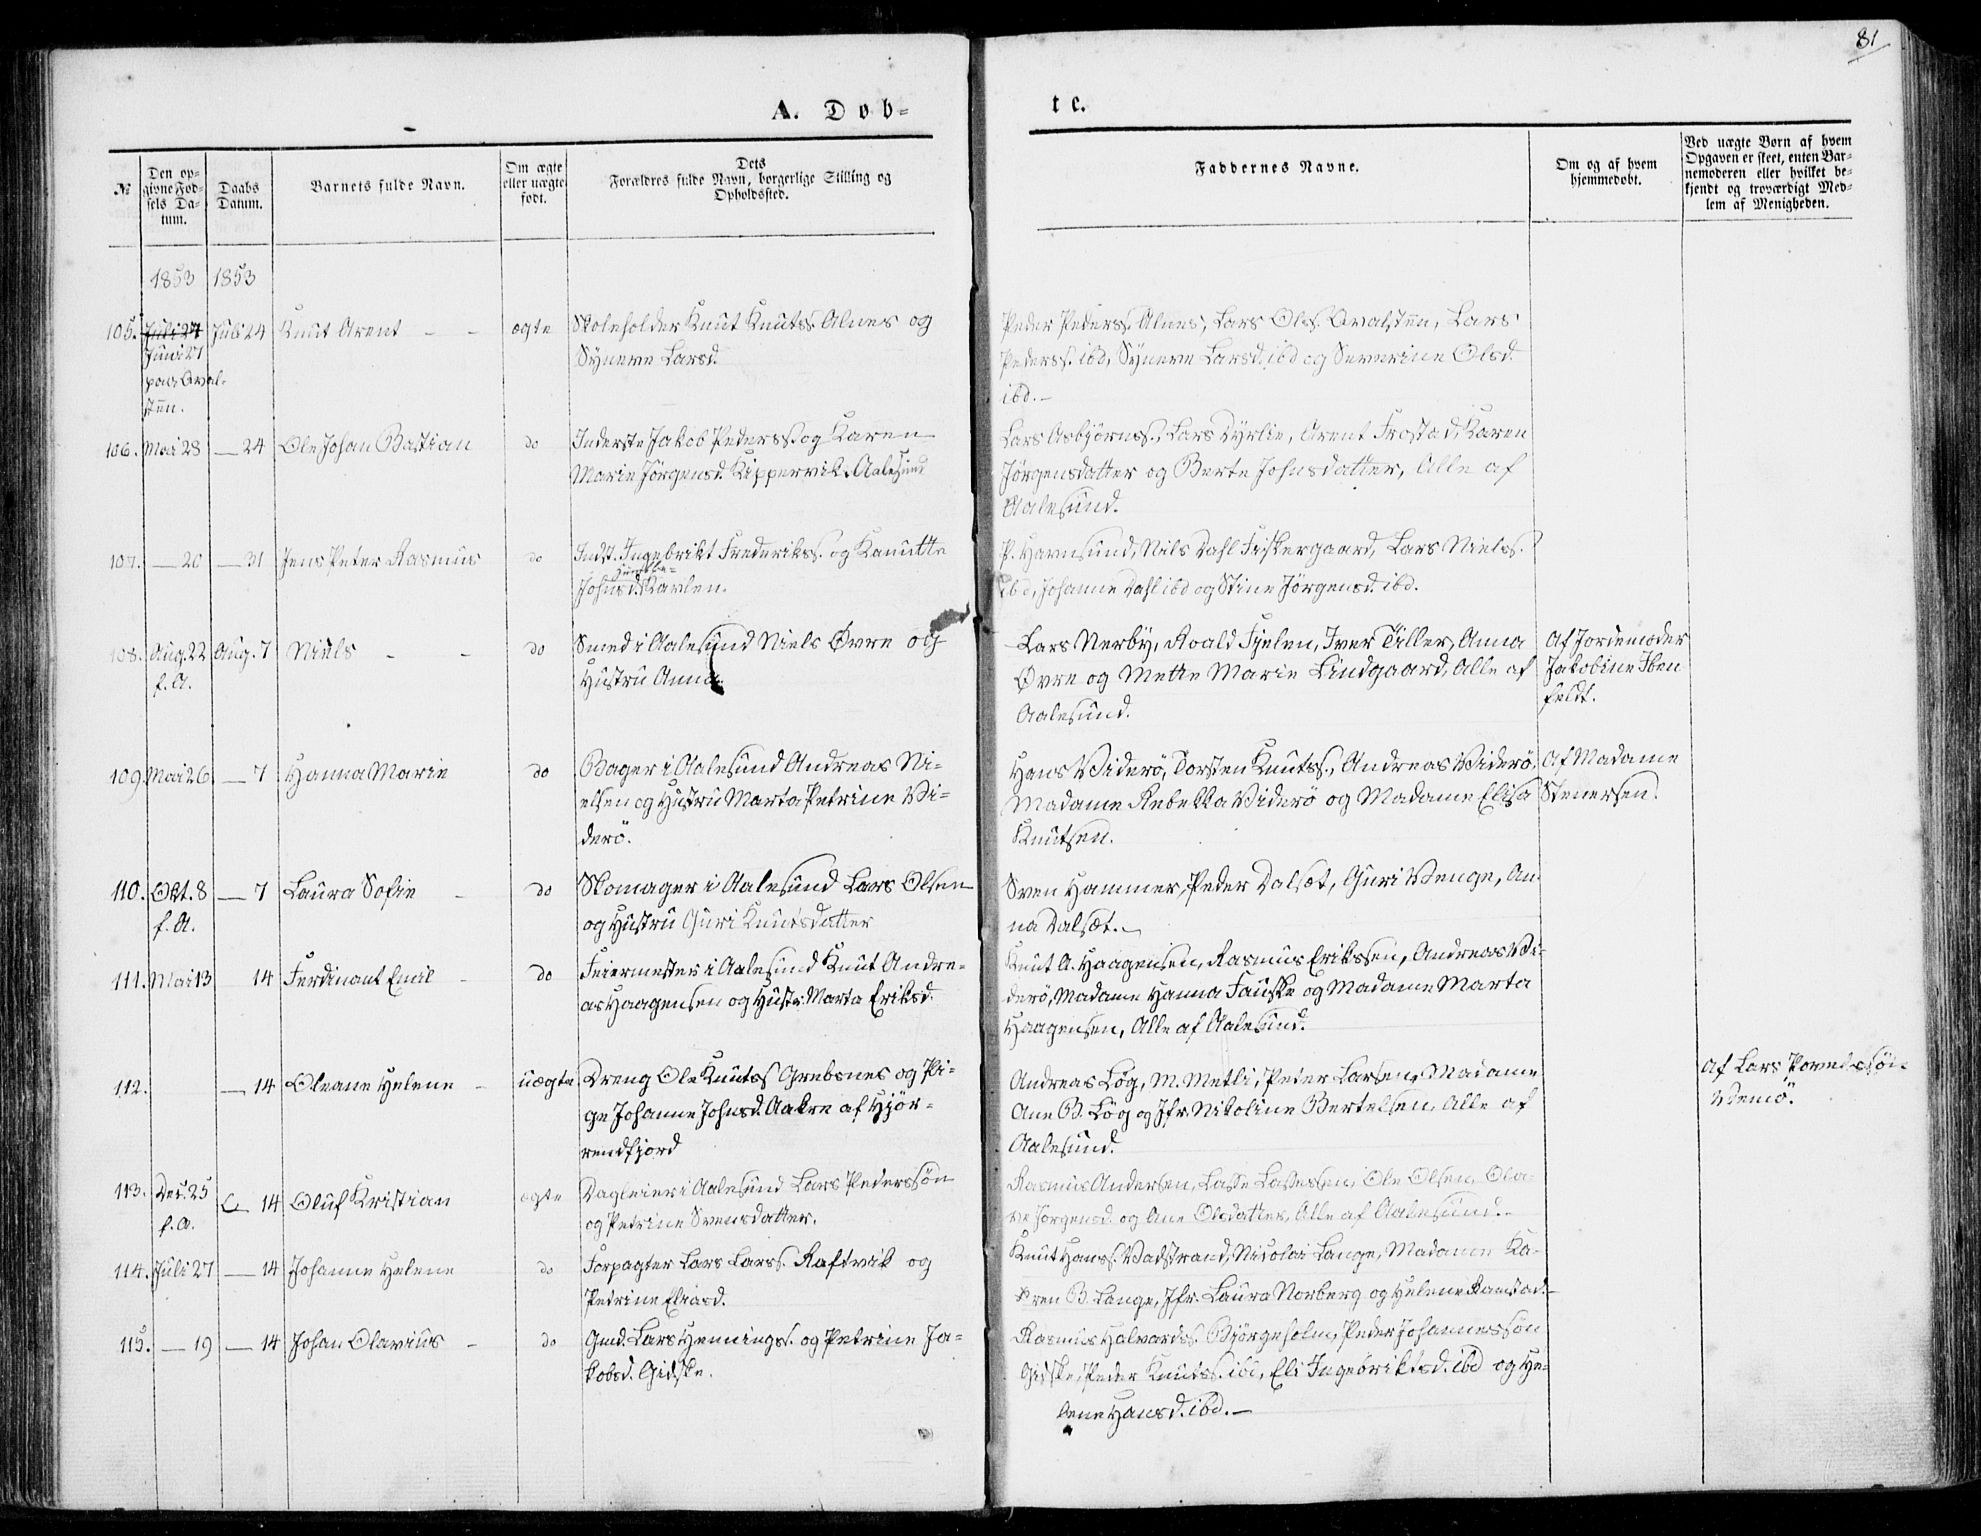 81
A. Døb=
te.
№
Den op=
givne Fød=
sels Da=
tum.
Daabs
Datum.
Barnets fulde Navn.
Om ægte
eller uægte
født.
Dets
Forældres fulde Navn, borgerlige Stilling og
Opholdssted.
Faddernes Navne.
Om og af hvem
hjemmedøbt.
Ved uægte Børn af hvem
Opgaven er skeet, enten Bar=
nemoderen eller hvilket be=
kjendt og troværdigt Med=
lem af Menigheden.
1853 1853
105. Juli 24 Knut Arent - - ægte Skoleholder Knut Knutss. Alnes og
Synneve Larsd.
Juni 21
Peder Peders. Alnes, Lars Ols. Lars
Peders. ibd, Synneve Larsd. ibd og Severine Olsd.
ibd. -
106. Mai 28 - 24 Ole Johan Bastian do Inderste Jakob Pederss. og Karen
Marie Jörgensd. Kippervik Aalesund
Lars Asbjørnss., Lars Dyrlie, Arent Frostad, Karen
Jørgensdatter og Berte Johnsdatter, Alle af
Aalesund.
107. - 20 - 31 Jens Peter Rasmus do Indst. Ingebrikt Frederikss. og Kanutte
Johnsd.
P. Havnsund, Nils Dahl Fiskergaard, Lars Niels.
ibd, Johanne Dahl ibd og Stine Jørgensd. ibd.
108. Aug. 22 Aug. 7 Niels - - do Smed i Aalesund Niels Øvre og
f. A. Hustru Anna
Lars Nerby, Roald Fjelen, Iver Tiller, Anna
Øvre og Mette Marie Lindgaard, Alle af
Aalesund.
Af Jordemoder
Jakobine Iben
feldt.
109. Mai 26 - 7 Hanna Marie do Bager i Aalesund Andreas Ni=
elsen og Hustru Marta Petrine Vi=
derö.
Hans Viderö, Torsten Knutss., Andreas Viderö,
Madame Rebekka Viderö og Madame Elisa
Knutsen.
Af Madame
Stenersen.
110. Okt. 8 - 7 Laura Sofie - do Skomager i Aalesund Lars Olsen
f. A. og Hustru Guri Knutsdatter
Sven Hammer, Peder Dalsæt, Guri Venge, An
na Dalsæt.
111. Mai 13 14 Ferdinant Emil - do Feiermester i Aalesund Knut Andre=
as Haagensen og Hustr. Marta Eriksd.
Knut A. Haagensen, Rasmus Erikssen, Andreas Vi=
derö, Madame Hanna Fauske og Madame Marta
Haagensen, Alle af Aalesund.
112. - 14 Oleane Helene - uægte Dreng Ole Knutss Grebsnes og Pi=
ge Johanne Johnsd. Aakre af Hjör=
rendfjord
Andreas Løg, M. Metli, Peter Larsen, Madame
Ane B. Løg og Jfr. Nikoline Bertelsen, Alle af
Aalesund.
Af Lars
113. Des. 25 14 Oluf Kristian ægte Dagleier i Aalesund Lars Pederssøn
f. A. og Petrine Svensdatter.
Rasmus Andersen, Lasse Lassessen, Ole Olsen, Ola=
ve Jørgensd. og Ane Olsdatter, Alle af Aalesund. -
114. Juli 27 - 14 Johanne Helene do Forpagter Lars Larss. Raftvik og
Petrine Eliasd.
Knut Hanss. Vadstrand, Nicolai Lange, Madame Ka=
ren B. Lange, Jfr. Laura Norberg og Helene Ramstad. -
115. - 19 - 14 Johan Olavius - do Gmd. Lars Hennings. og Petrine Ja=
kobsd. Gidske.
Rasmus Halvards. Bjørgeholm, Peder Johannessøn
Gidske, Peder Knutss. ibd, Eli Ingebriktsd. ibd og He=
lene Hansd. ibd. -